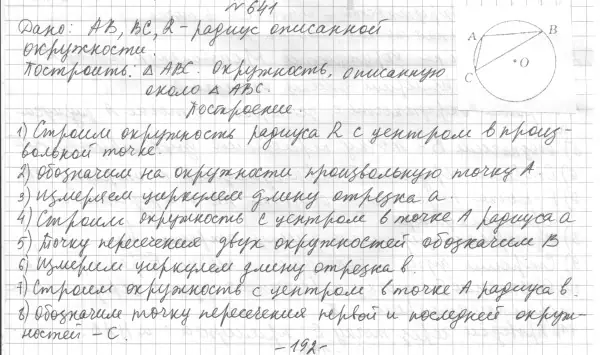 № 641
Дано: AB, BC, R - радиус описанной
окружности.
Построить: △ ABC. окружность, описанную
около △ ABC.
Построение.
1) Строим окружность радиуса R с центром в произ-
вольной точке.
2) Обозначим на окружности произвольную точку A.
3) Измеряем циркулем длину отрезка a.
4) Строим окружность с центром в точке A радиуса a
5) Точку пересечения двух окружностей обозначим B
6) Измерим циркулем длину отрезка в.
7) Строим окружность с центром в точке A радиуса в.
8) Обозначим точку пересечения первой и последней окруж-
ностей - C.
A
B
C
O
- 192 -